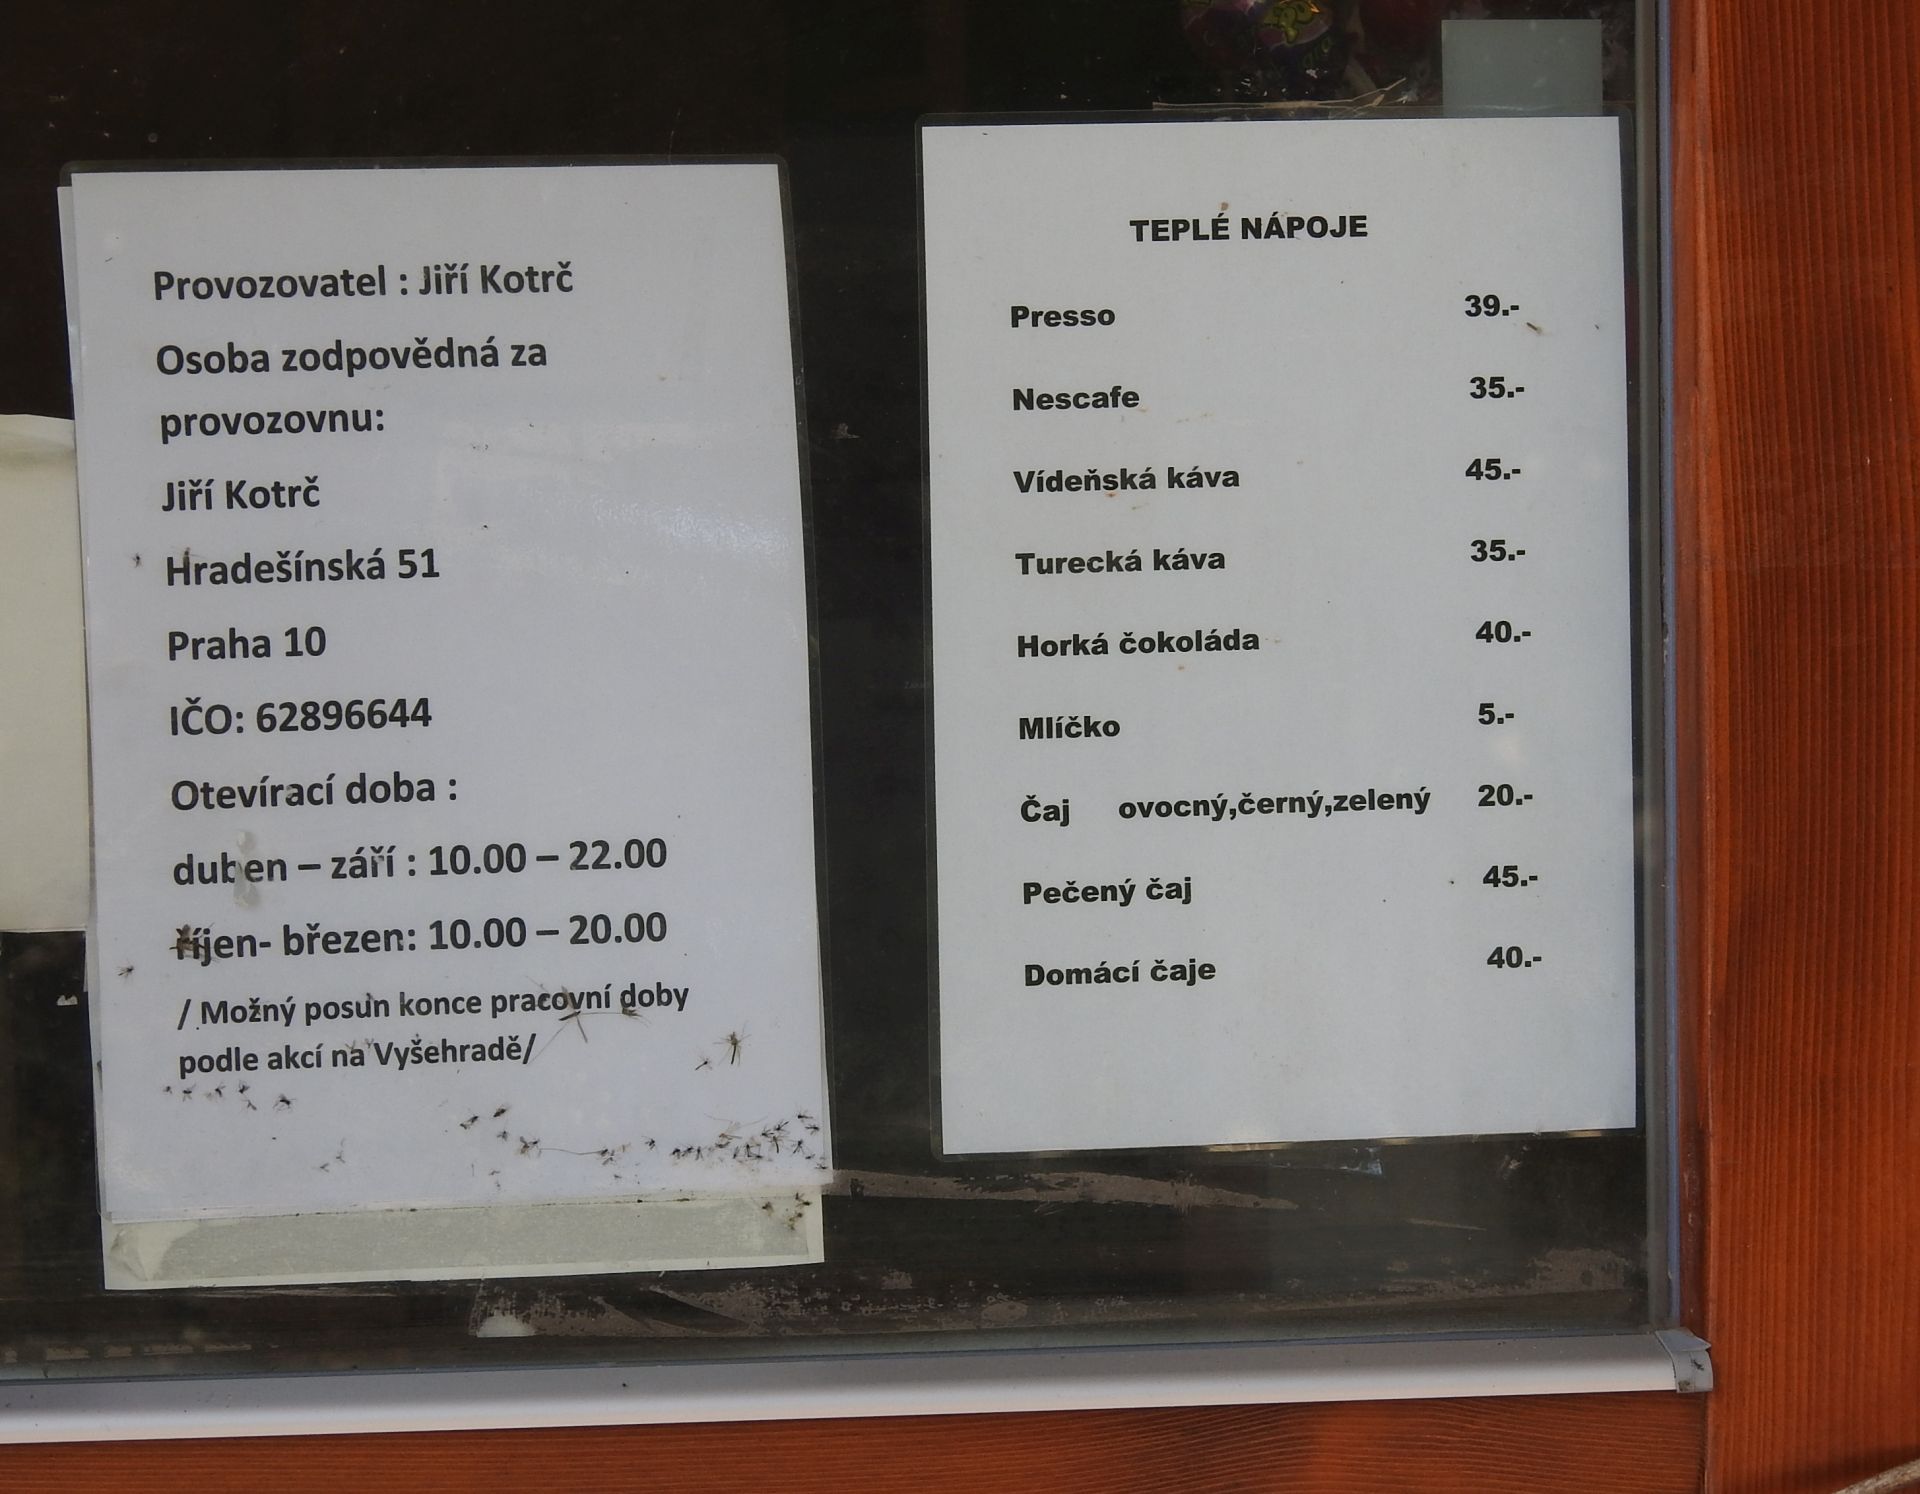 Provozovatel : Jiří Kotrč
Osoba zodpovědná za
provozovnu:
Jiří Kotrč
Hradešínská 51
Praha 10
IČO: 62896644
Otevírací doba :
duben – září : 10.00 – 22.00
říjen- březen: 10.00 – 20.00
/ Možný posun konce pracovní doby
podle akcí na Vyšehradě/
TEPLÉ NÁPOJE
Presso 39.-
Nescafe 35.-
Vídeňská káva 45.-
Turecká káva 35.-
Horká čokoláda 40.-
Mlíčko 5.-
Čaj ovocný,černý,zelený 20.-
Pečený čaj 45.-
Domácí čaje 40.-